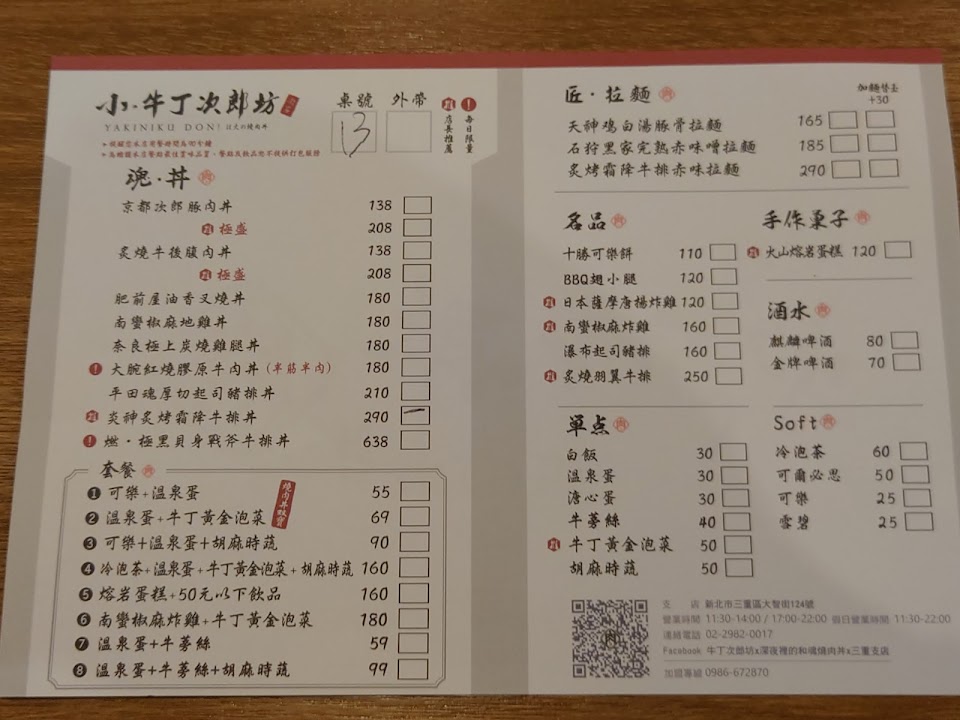 小·牛丁次郎坊
YAKINIKU DON! 日式の燒肉丼
桌號 外帶
13
店長推薦
! 每日限量
魂·丼
京都次郎豚肉丼 138
極盛 208
炙燒牛後腹肉丼 138
極盛 208
肥前屋油香叉燒丼 180
南蠻椒麻地雞丼 180
奈良極上炭燒雞腿丼 180
! 大腕紅燒膠原牛肉丼(半筋半肉) 180
平田魂厚切起司豬排丼 210
炎神炙烤霜降牛排丼 290
! 燃·極黑貝身戰斧牛排丼 638
套餐
燒肉丼類寶
1 可樂+溫泉蛋 55
2 溫泉蛋+牛丁黃金泡菜 69
3 可樂+溫泉蛋+胡麻時蔬 90
4 冷泡茶+溫泉蛋+牛丁黃金泡菜+胡麻時蔬 160
5 熔岩蛋糕+50元以下飲品 160
6 南蠻椒麻炸雞+牛丁黃金泡菜 180
7 溫泉蛋+牛蒡絲 59
8 溫泉蛋+牛蒡絲+胡麻時蔬 99
匠·拉麵
加麵替玉
+30
天神鸡白湯豚骨拉麵 165
石狩黑家完熟赤味噌拉麵 185
炙烤霜降牛排赤味拉麵 290
名品
十勝可樂餅 110
BBQ翅小腿 120
日本薩摩唐揚炸雞 120
南蠻椒麻炸雞 160
瀑布起司豬排 160
炙燒羽翼牛排 250
手作菓子
火山熔岩蛋糕 120
酒水
麒麟啤酒 80
金牌啤酒 70
單点
白飯 30
溫泉蛋 30
溏心蛋 30
牛蒡絲 40
牛丁黃金泡菜 50
胡麻時蔬 50
Soft
冷泡茶 60
可爾必思 50
可樂 25
雪碧 25
支 店 新北市三重區大智街124號
營業時間 11:30-14:00 / 17:00-22:00 假日營業時間 11:30-22:00
連絡電話 02-2982-0017
Facebook 牛丁次郎坊x深夜裡的和魂燒肉丼x三重支店
加盟專線 0986-672870